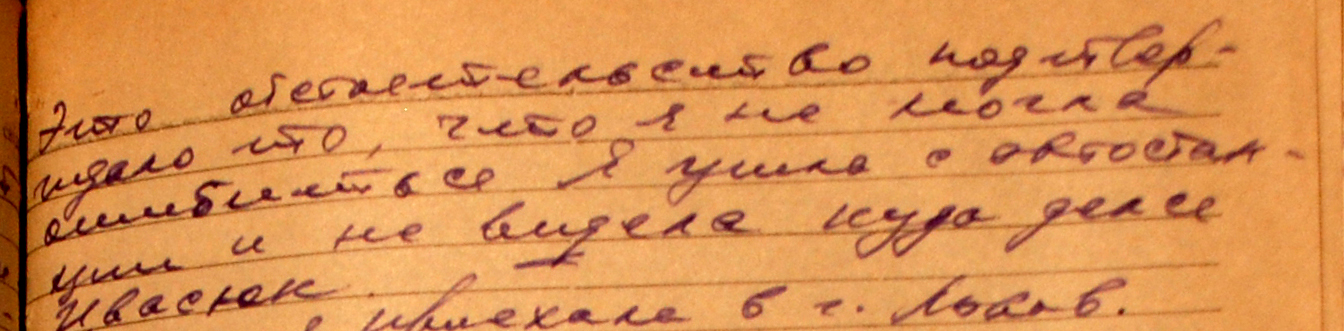 Это обстоятельство подтвер-
ждало то, что я не могла
ошибиться Я ушла с автостан-
ции и не видела куда делся
Ивасюк.
приехала в г. Львов.